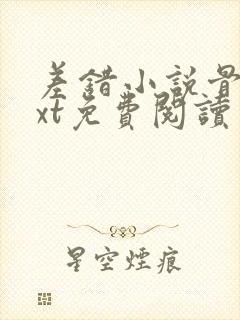 差錯小説骨
xt免費閱讀
星空煙痕